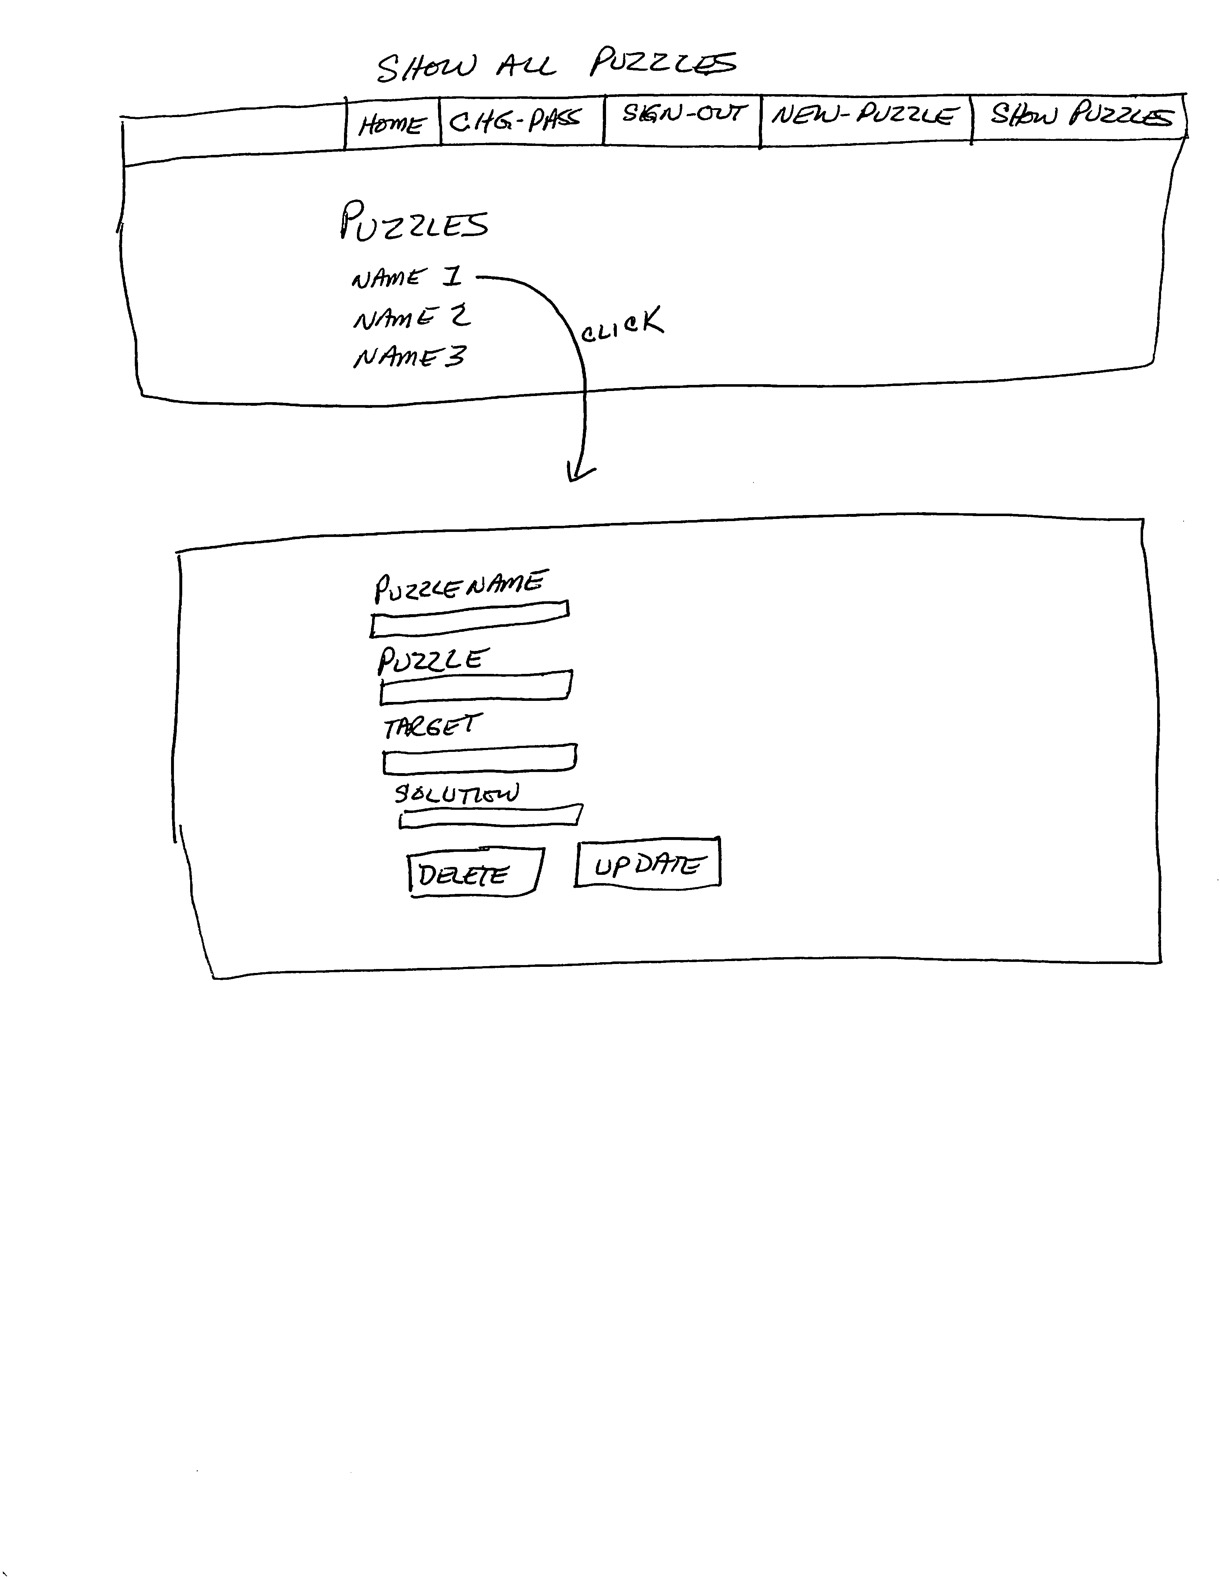 SHOW ALL PUZZLES
HOME CHG-PASS SIGN-OUT NEW-PUZZLE SHOW PUZZLES
PUZZLES
NAME 1
NAME 2
NAME 3
CLICK
PUZZLE NAME
PUZZLE
TARGET
SOLUTION
DELETE UPDATE